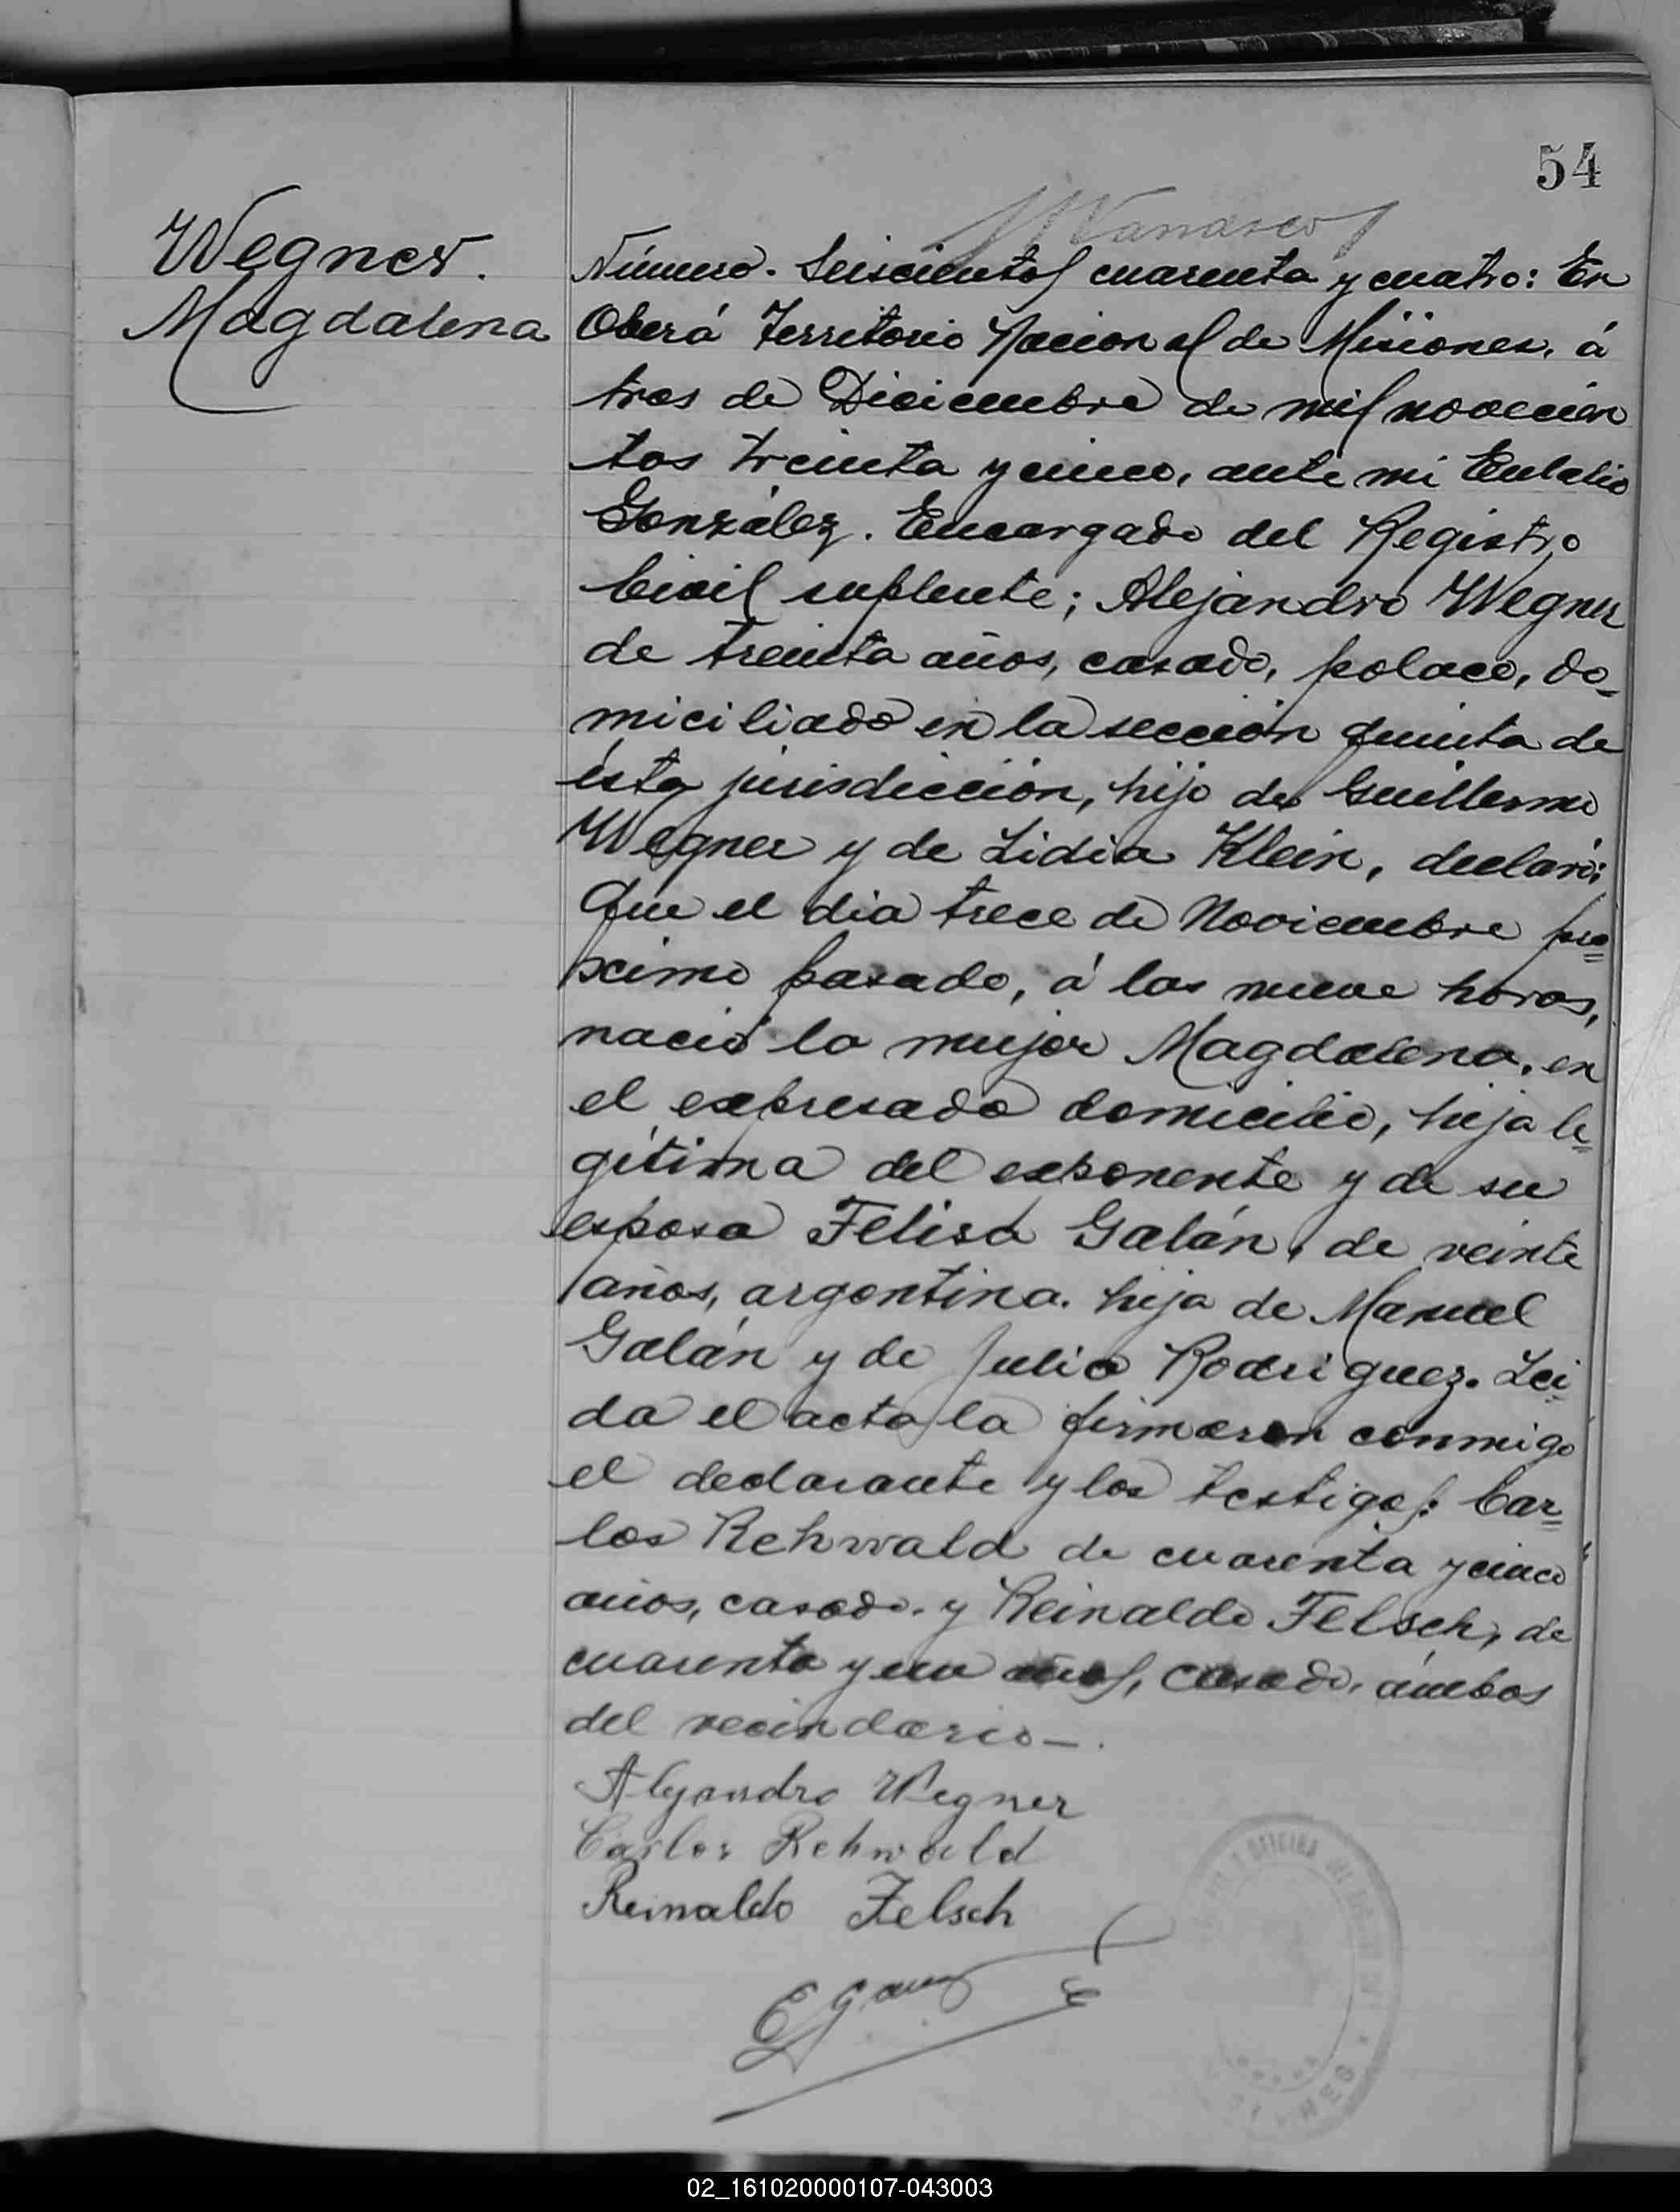 54
Wegner.
Magdalena
Número. Seiscientos cuarenta y cuatro: En
Oberá Territorio Nacional de Misiones, á
tres de Diciembre de mil novecien
tos treinta y cinco, ante mi Eulalio
González. Encargado del Registro
Civil suplente; Alejandro Wegner
de treinta años, casado, polaco, do-
miciliado en la sección quinta de
ésta jurisdicción, hijo de Guillermo
Wegner y de Lidia Klein, declaró:
Que el dia trece de Noviembre pro=
ximo pasado, á las nueve horas,
nació la mujer Magdalena, en
el expresado domicilio, hija le=
gítima del exponente y de su
esposa Felisa Galán, de veinte
años, argentina. hija de Manuel
Galán y de Julia Rodriguez. Lei-
da el acta la firmaron conmigo
el declarante y los testigos: Car=
los Rehwald de cuarenta y cinco
años, casado. y Reinaldo Felsch, de
cuarenta y un años, casado, ámbos
del vecindario-.
Alejandro Wegner
Carlos Rehwald
Reinaldo Felsch
02_161020000107-043003